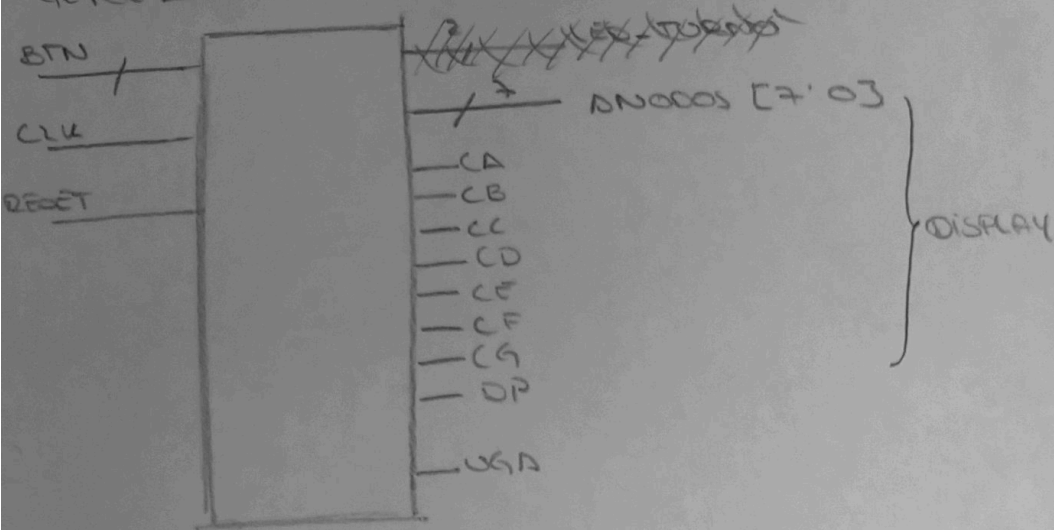 BTN
CLK
RESET
7
ANODOS [7:0]
CA
CB
CC
CD
CE
CF
CG
DP
DISPLAY
VGA